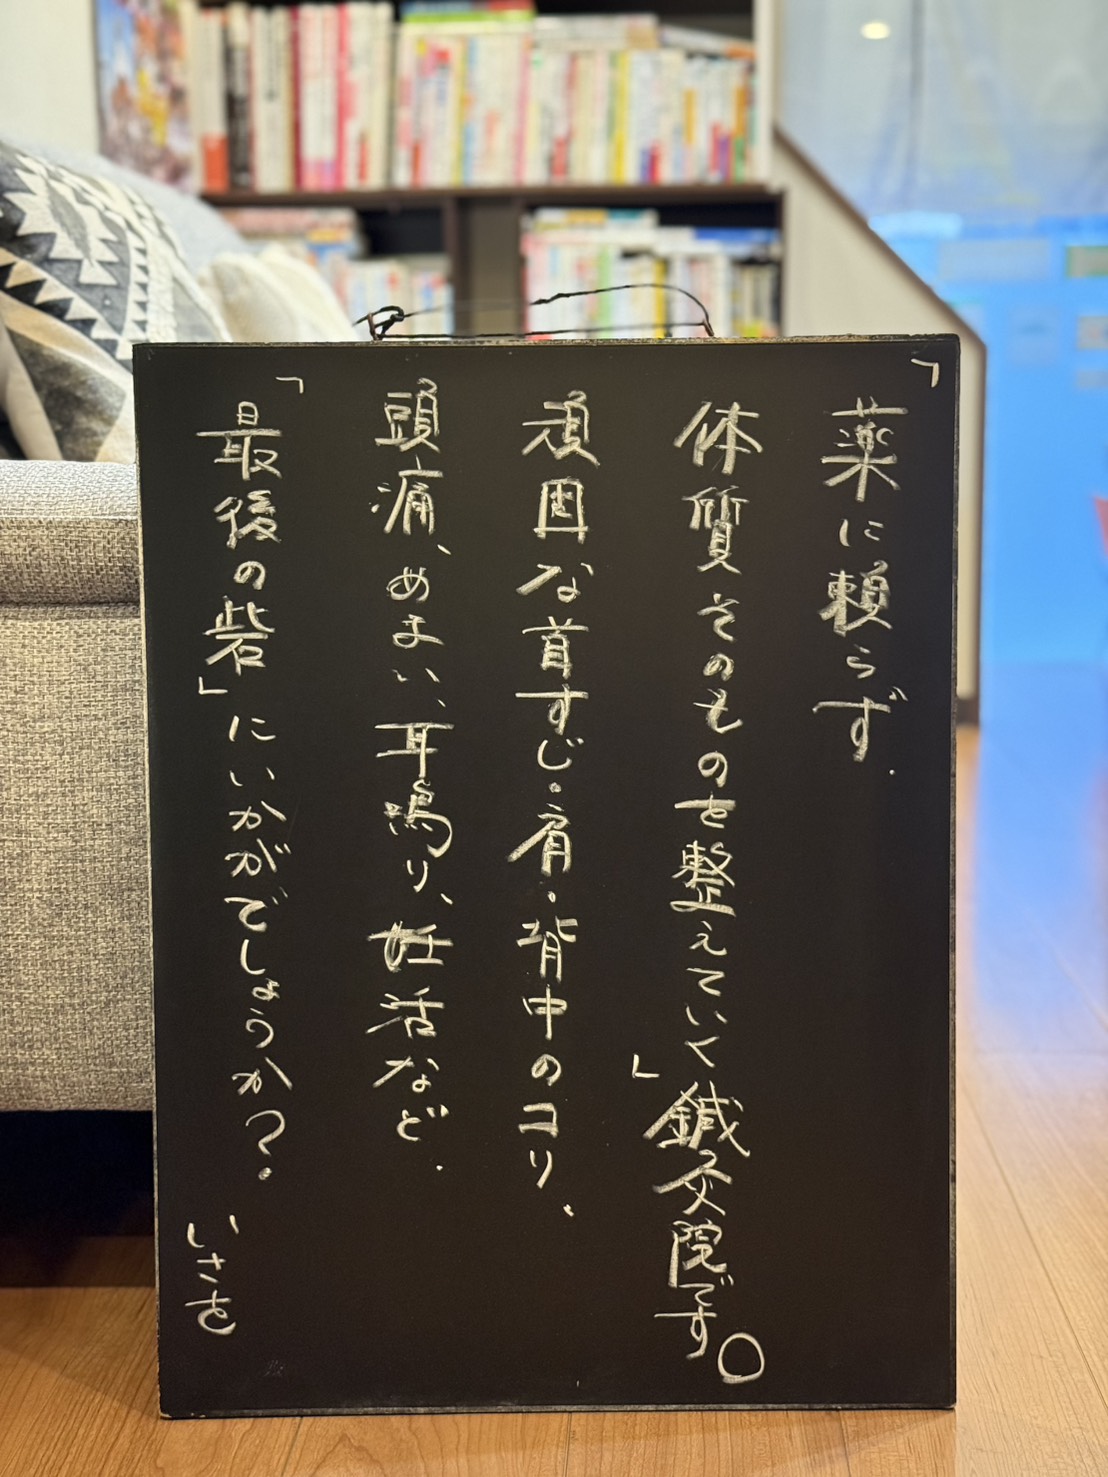 「薬に頼らず、
体質そのものを整えていく」鍼灸院です。
頑固な首すじ・肩・背中のコリ、
頭痛、めまい、耳鳴り、妊活など、
「最後の砦」にいかがでしょうか?
いさを